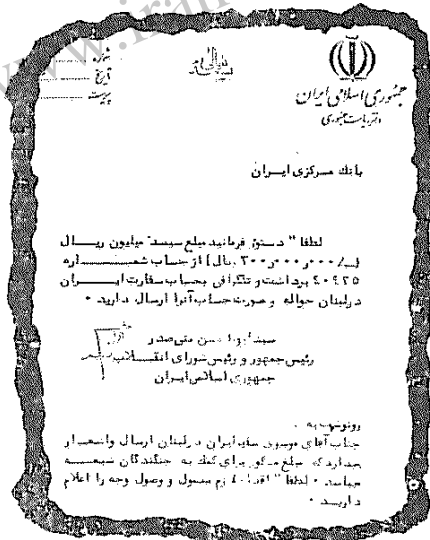 www.iran
بسمه تعالی
جمهوری اسلامی ایران
دفتر ریاست جمهوری
شماره
تاریخ
پیوست
بانک مرکزی ایران
لطفا" دستور فرمائید مبلغ سیصد میلیون ریال
۳۰۰ر۰۰۰ر۰۰۰ ریال) از حساب شماره
برداشت و تلگرافی بحساب سفارت ایران
در لبنان حواله و صورت حساب آنرا ارسال دارید ٠
سید ابوالحسن بنی صدر
رئیس جمهور و رئیس شورای انقلاب
جمهوری اسلامی ایران
رونوشت به
جناب آقای موسوی سفیر ایران در لبنان ارسال و اشعار
میدارد که مبلغ مذکور برای کمک به جنگندگان شیعه
میباشد ٠ لطفا" اقدام لازم معمول و وصول وجه را اعلام
دارید ٠